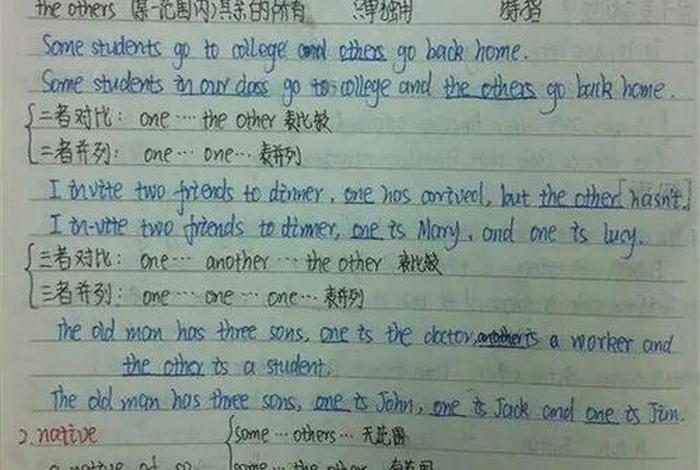 the others (某一范围内)其余的所有 只单独用 特指
Some students go to college and others go back home.
Some students in our class go to college and the others go back home.
二者对比: one … the other 表比较
二者并列: one … one … 表并列
I invite two friends to dinner, one has arrived, but the other hasn't.
I in-vite two friends to dinner, one is Mary, and one is lucy.
三者对比: one … another … the other 表比较
三者并列: one … one … one … 表并列
The old man has three sons, one is the doctor, another is a worker and
the other is a student.
The old man has three sons, one is John, one is Jack and one is Jim.
2. native some … others … 无范围
a native of some … the other 有范围